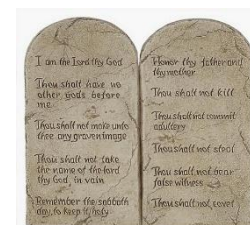 I am the Lord thy God
Thou shalt have no
other gods before
me.
Thou shalt not make unto
thee any graven image
Thou shalt not take
the name of the lord
thy God, in vain
Remember the sabbath
day, to keep it, holy
Honor thy father and
thy mother
Thou shalt not kill
Thou shalt not commit
adultery
Thou shalt not steal
Thou shalt not bear
false witness
Thou shalt not covet